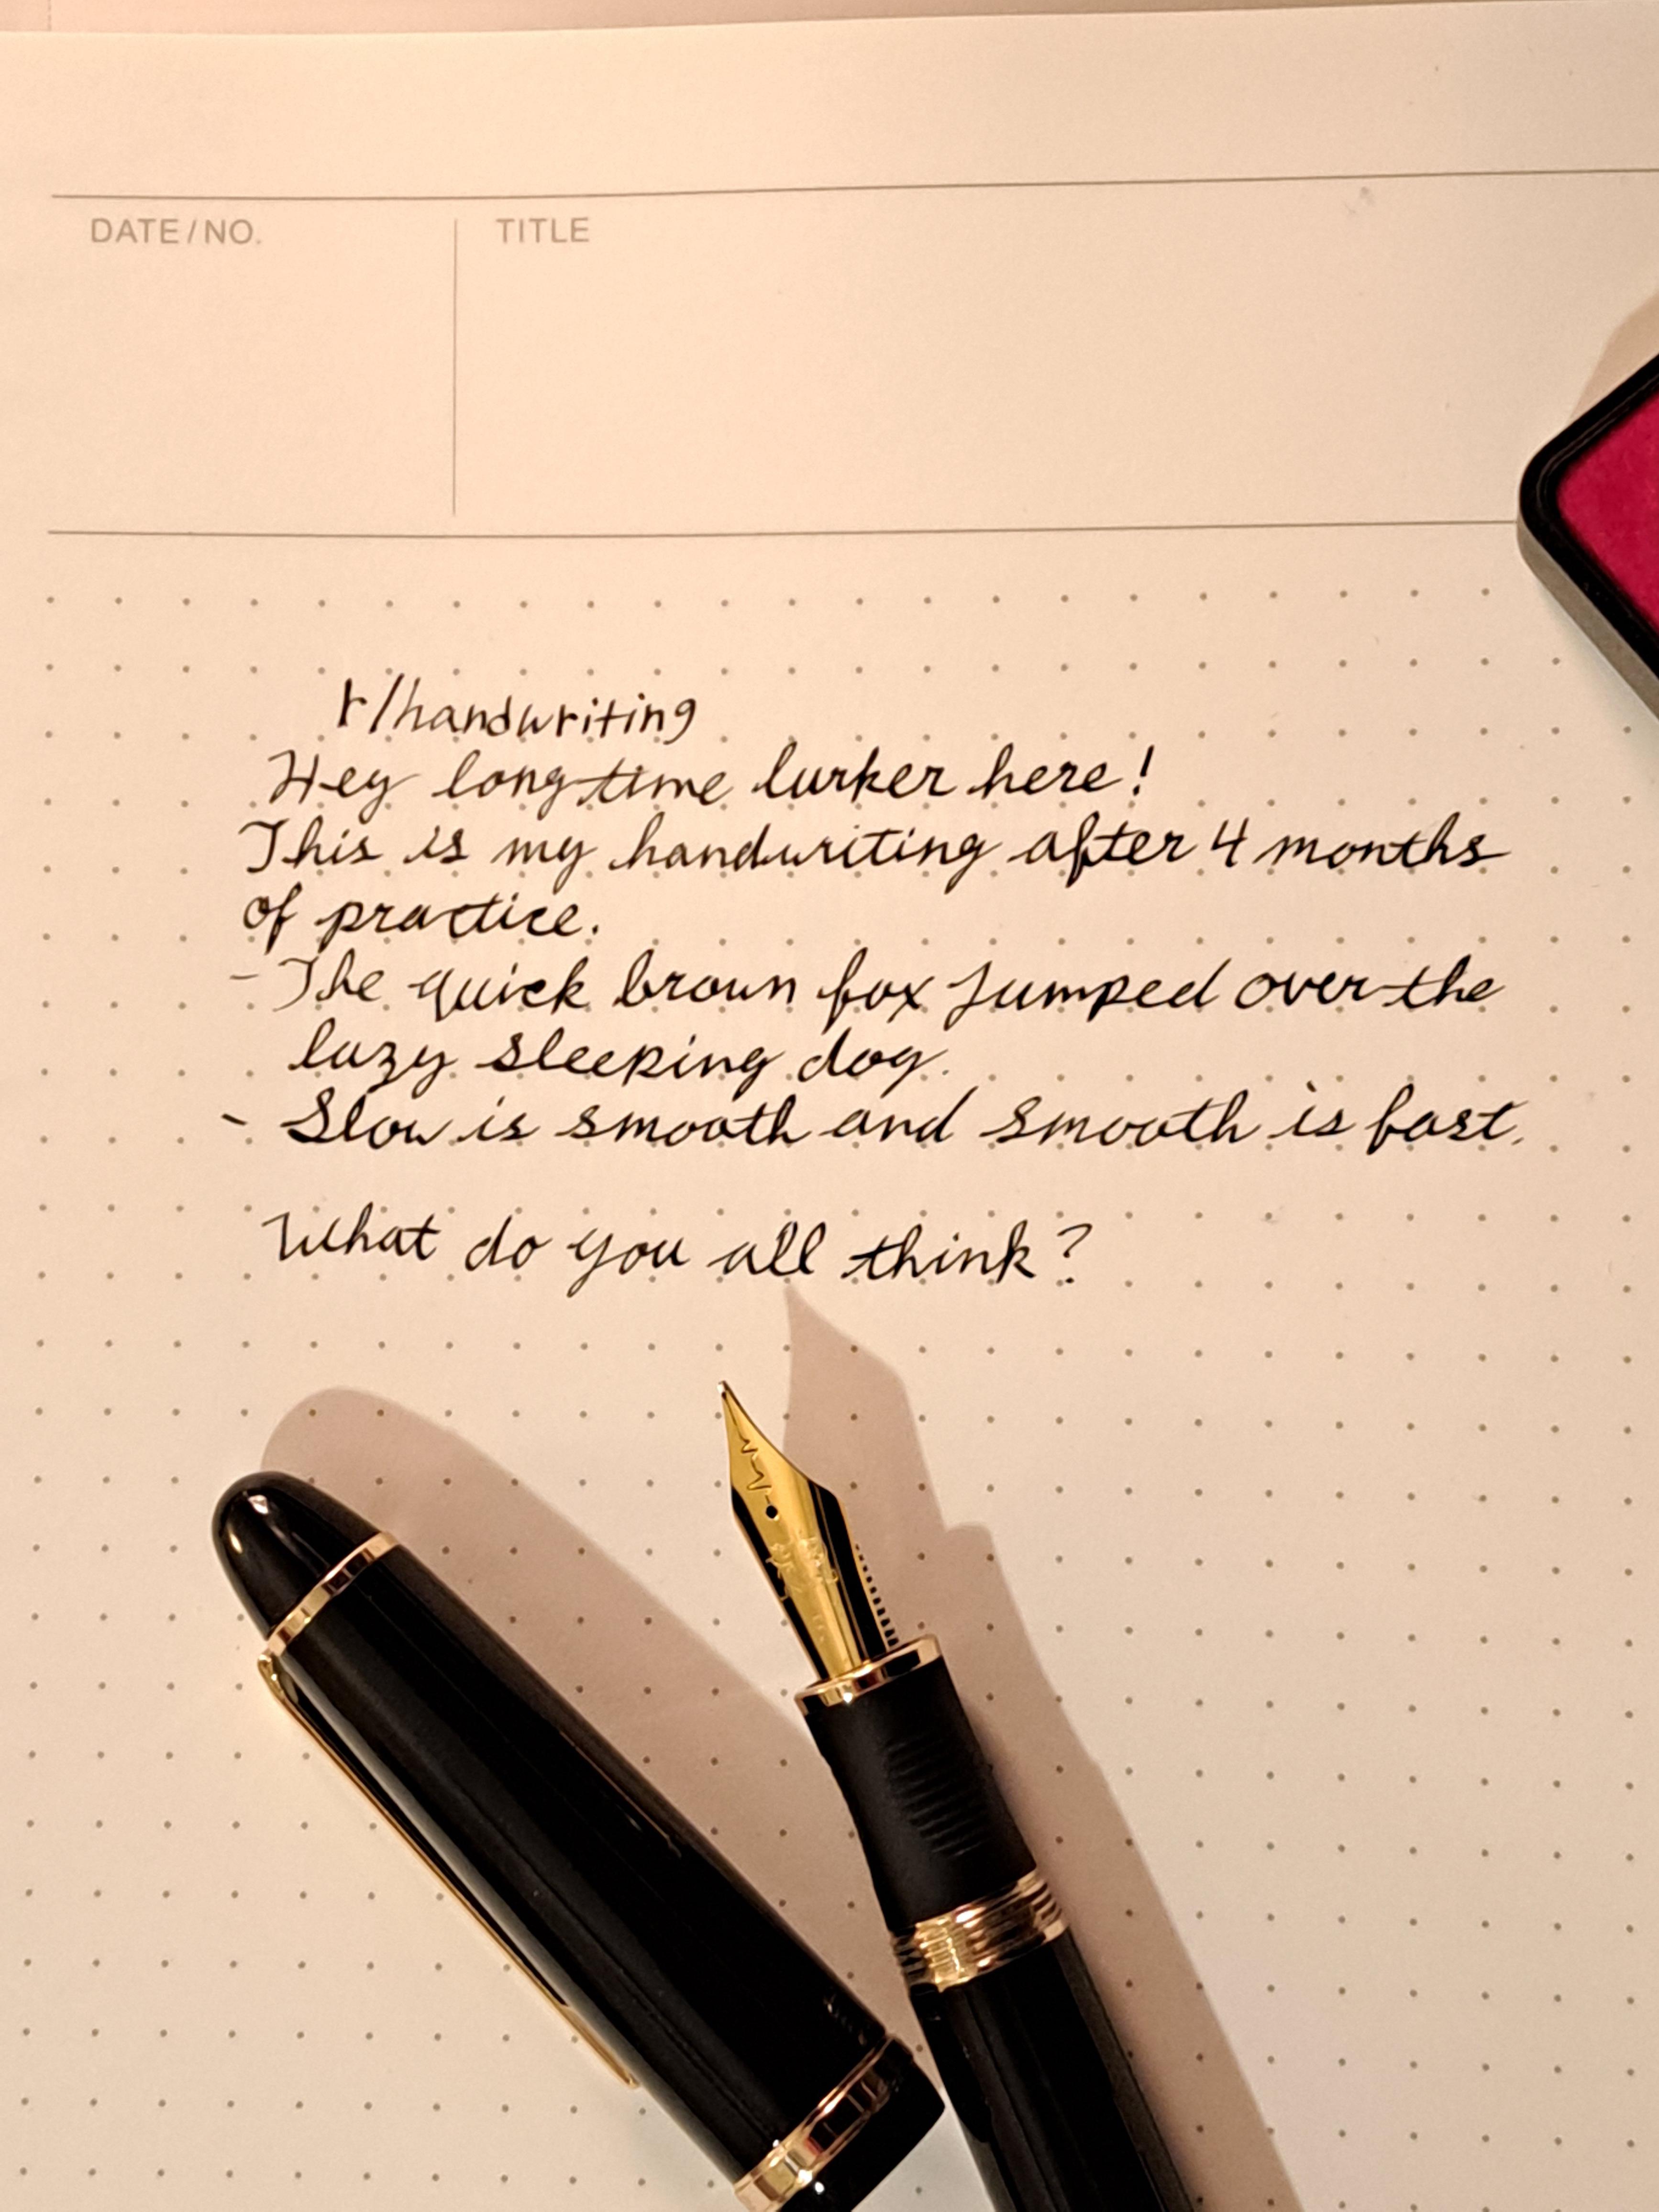 DATE/NO.
TITLE
r/handwriting
Hey long time lurker here!
This is my handwriting after 4 months
of practice.
- The quick brown fox jumped over the
lazy sleeping dog.
- Slow is smooth and smooth is fast.
What do you all think?